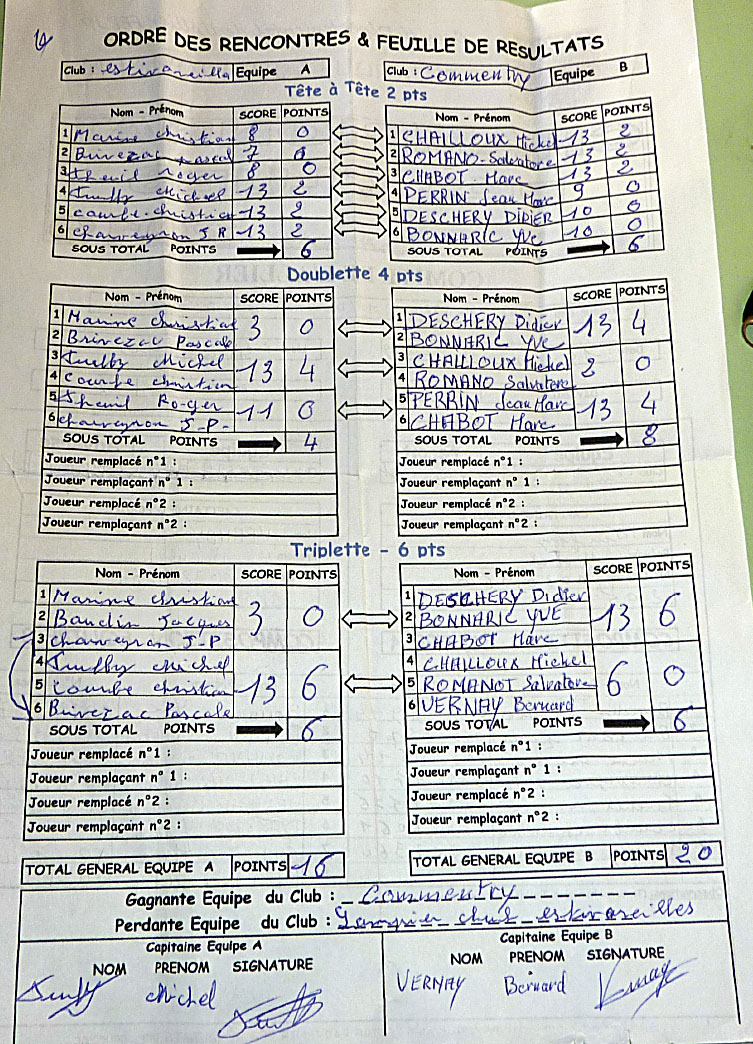 ORDRE DES RENCONTRES & FEUILLE DE RESULTATS
Club : estivareilles Equipe A Club : Commentry Equipe B
Tête à Tête 2 pts
Nom - Prénom SCORE POINTS Nom - Prénom SCORE POINTS
1 Marine christian 8 0 1 CHAILLOUX Michel 13 2
2 Brivezac pascal 7 0 2 ROMANO-Salvatore 13 2
3 theuil roger 8 0 3 CHABOT Marc 13 2
4 Michel 13 2 4 PERRIN Jean Marc 9 0
5 courbe-christian 13 2 5 DESCHERY DIDIER 10 0
6 chauveyron J P 13 2 6 BONNARIC YVe 10 0
SOUS TOTAL POINTS 6 SOUS TOTAL POINTS 6
Doublette 4 pts
Nom - Prénom SCORE POINTS Nom - Prénom SCORE POINTS
1 Marine christian 3 0 1 DESCHERY Didier 13 4
2 Brivezac Pascale 2 BONNARIC YVe
3 Michel 13 4 3 CHAILLOUX Michel 2 0
4 Courbe christian 4 ROMANO Salvatore
5 theuil Roger 11 0 5 PERRIN Jean Marc 13 4
6 chauveyron J-P- 6 CHABOT Marc
SOUS TOTAL POINTS 4 SOUS TOTAL POINTS 8
Joueur remplacé n°1 : Joueur remplacé n°1 :
Joueur remplaçant n° 1 : Joueur remplaçant n° 1 :
Joueur remplacé n°2 : Joueur remplacé n°2 :
Joueur remplaçant n°2 : Joueur remplaçant n°2 :
Triplette - 6 pts
Nom - Prénom SCORE POINTS Nom - Prénom SCORE POINTS
1 Marine christian 3 0 1 DESCHERY Didier 13 6
2 Baudin Jacques 2 BONNHARIC YVE
3 chauveyron J-P 3 CHABOT Marc
4 Michel 13 6 4 CHAILLOUX Michel 6 0
5 Courbe christian 5 ROMANOT Salvatore
6 Brivezac Pascale 6 VERNAY Bernard
SOUS TOTAL POINTS 6 SOUS TOTAL POINTS 6
Joueur remplacé n°1 : Joueur remplacé n°1 :
Joueur remplaçant n° 1 : Joueur remplaçant n° 1 :
Joueur remplacé n°2 : Joueur remplacé n°2 :
Joueur remplaçant n°2 : Joueur remplaçant n°2 :
TOTAL GENERAL EQUIPE A POINTS 16 TOTAL GENERAL EQUIPE B POINTS 20
Gagnante Equipe du Club : Commentry
Perdante Equipe du Club : club estivareilles
Capitaine Equipe A Capitaine Equipe B
NOM PRENOM SIGNATURE NOM PRENOM SIGNATURE
Michel VERNAY Bernard